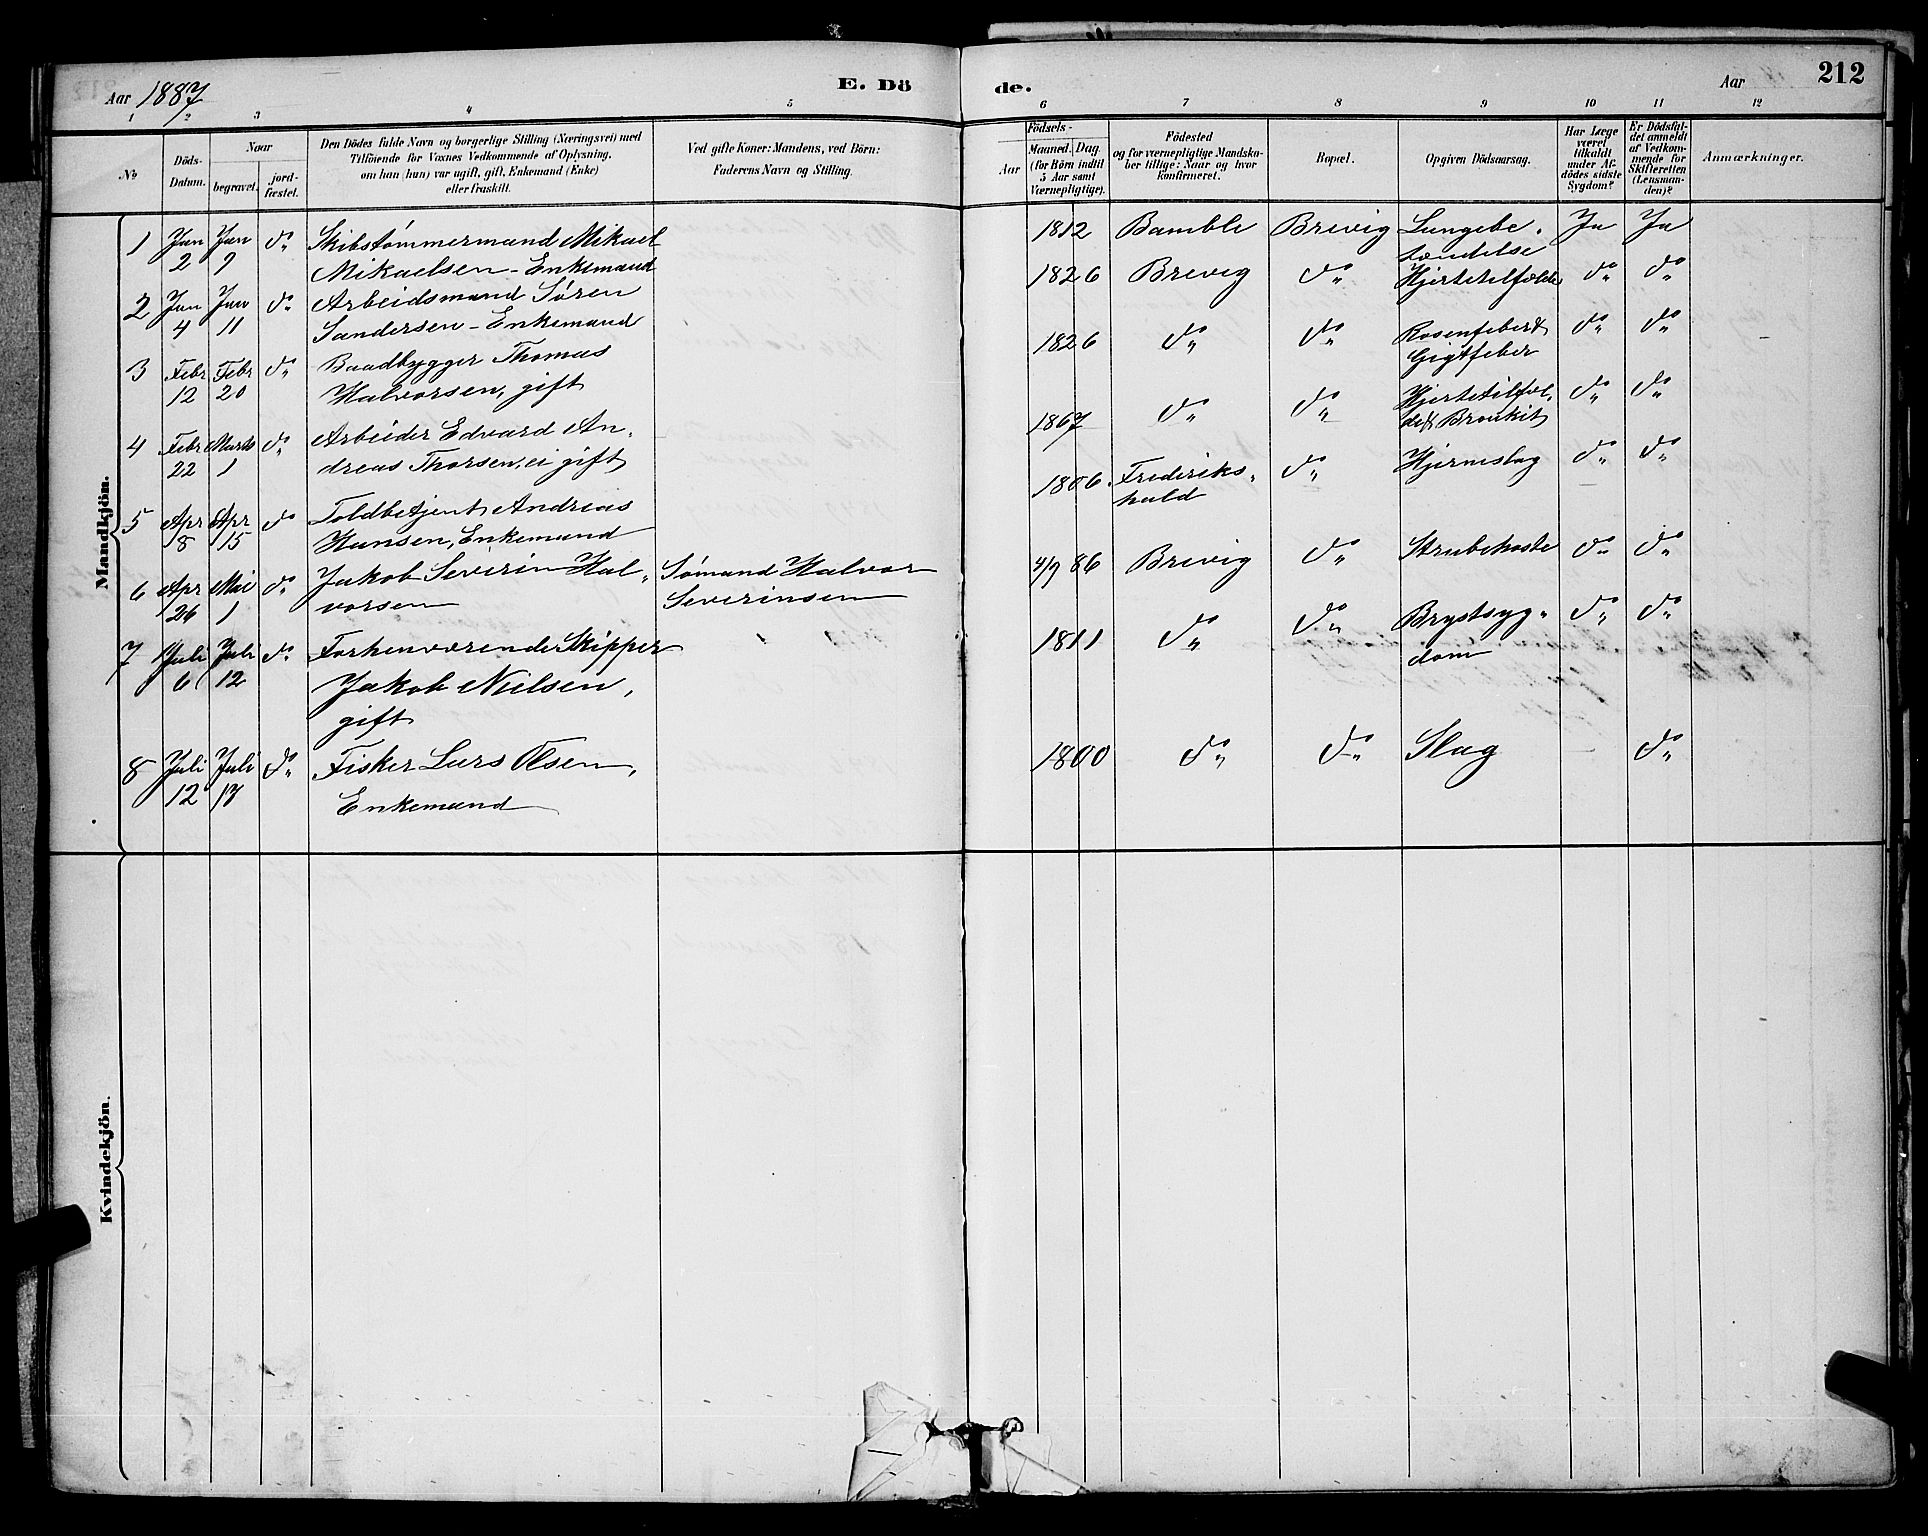 Aar 1887 E. Dö de. Aar 212
1 2 3 4 5 6 7 8 9 10 11 12
No
Döds-
Datum.
Naar
begravet.
jord-
fæstet.
Den Dödes fulde Navn og borgerlige Stilling (Næringsvei) med
Tilföiende for Voxnes Vedkommende af Oplysning,
om han (hun) var ugift, gift, Enkemand (Enke)
eller fraskilt.
Ved gifte Koner: Mandens, ved Börn:
Faderens Navn og Stilling.
Födsels-
Aar
Maaned. Dag.
(for Börn indtil
5 Aar samt
Værnepligtige).
Födested
og for værnepligtige Mandska-
ber tillige: Naar og hvor
konfirmeret.
Bopæl.
Opgiven Dödsaarsag.
Har Læge
været
tilkaldt
under Af-
dödes sidste
Sygdom?
Er Dödsfal-
det anmeldt
af Vedkom-
mende for
Skifteretten
(Lensman-
den)?
Anmærkninger.
Mandkjön.
1 Jan Jan do Skibstømmermand Mikael 1812 Bamble Brevig Lungebe- Ja Ja
2 9 Mikaelsen - Enkemand tændelse
2 Jan Jan do Arbeidsmand Søren 1826 Brevig do Hjertetilfælde do do
4 11 Sandersen - Enkemand
3 Febr Febr do Baadbygger Thomas 1826 do do Rosenfeber & do do
12 20 Halvorsen, gift Gigtfeber
4 Febr Marts do Arbeider Edvard An- 1867 do do Hjertetilfæl- do do
22 1 dreas Thorsen, ei gift de & Bronkit
5 Apr Apr do Toldbetjent Andreas 1806 Frederiks- do Hjerneslag do do
8 15 Hansen, Enkemand hald
6 Apr Mai do Jakob Severin Hal- Sømand Halvor 4/9 86 Brevig do Strubehoste do do
26 1 vorsen Severinsen
7 Juli Juli do Forhenværende Skipper 1811 do do Brystsyg- do do
6 12 Jakob Nielsen, dom
gift
8 Juli Juli do Fisker Lars Olsen, 1800 do do Slag - do
12 17 Enkemand
Kvindekjön.